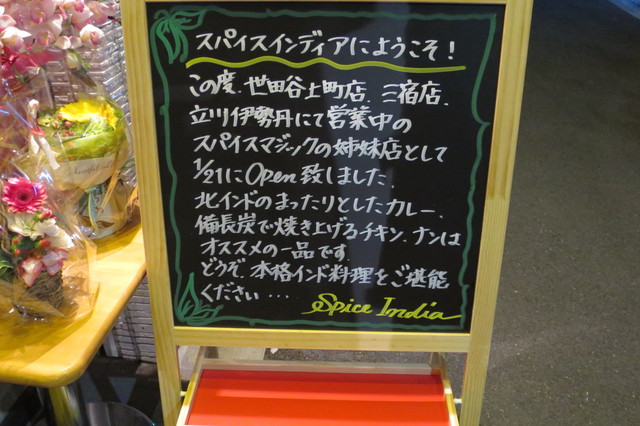 スパイスインディアにようこそ!
この度、世田谷上町店、三宿店、
立川伊勢丹にて営業中の
スパイスマジックの姉妹店として
1/21にOpen致しました。
北インドのまったりとしたカレー、
備長炭で焼き上げるチキン、ナンは
オススメの一品です
どうぞ、本格インド料理をご堪能
ください・・・
Spice India